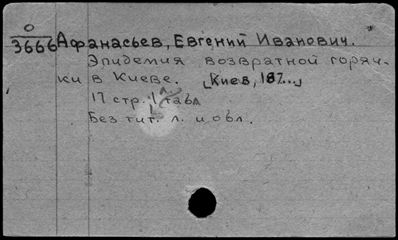 О
3666
Афанасьев, Евгений Иванович.
Эпидемия возвратной горяч-
ки в Киеве. [Киев, 187...]
17 стр. 1 табл
Без тит. л. и обл.